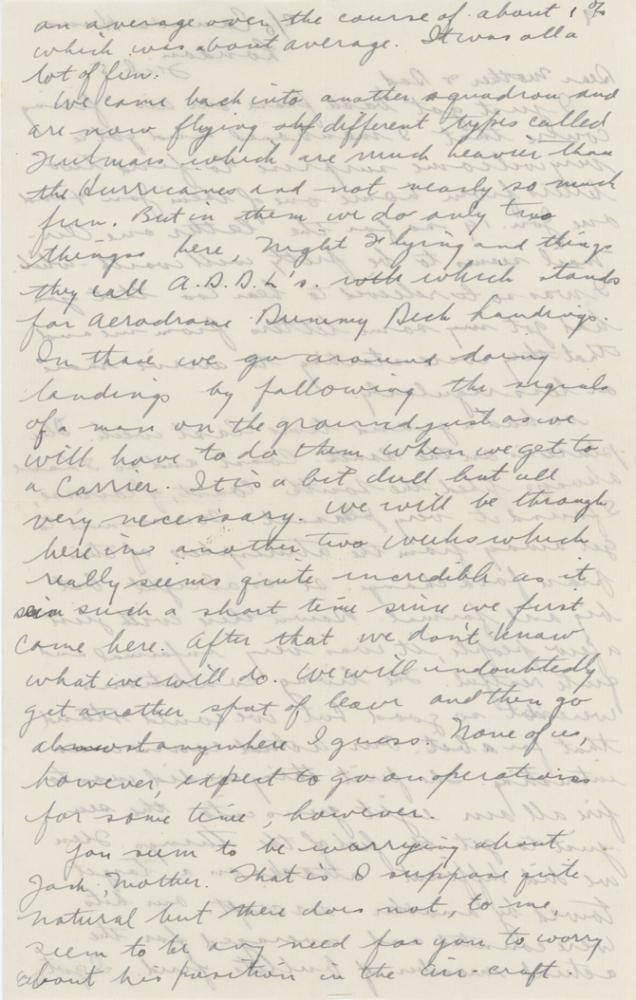 an average over the course of about 1 %
which was about average. It was all a
lot of fun.
We came back into another squadron and
are now flying different types called
Fulmars which are much heavier than
the Hurricanes and not nearly so much
fun. But in them we do only two
things here, Night Flying and things
they call A.D.D.L's. which stands
for Aerodrome Dummy Deck Landings.
In those we go around doing
landings by following the signals
of a man on the ground just as we
will have to do them when we get to
a Carrier. It is a bit dull but all
very necessary. We will be through
here in another two weeks which
really seems quite incredible as it
such a short time since we first
came here. After that we don't know
what we will do. We will undoubtedly
get another spot of leave and then go
almost anywhere I guess. None of us,
however, expect to go on operations
for some time, however.
You seem to be worrying about
Jack, Mother. That is I suppose quite
natural but there does not, to me,
seem to be any need for you to worry
about his position in the air-craft.